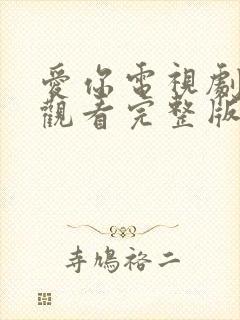 愛你電視劇
觀看完整版
寺鳩裕二